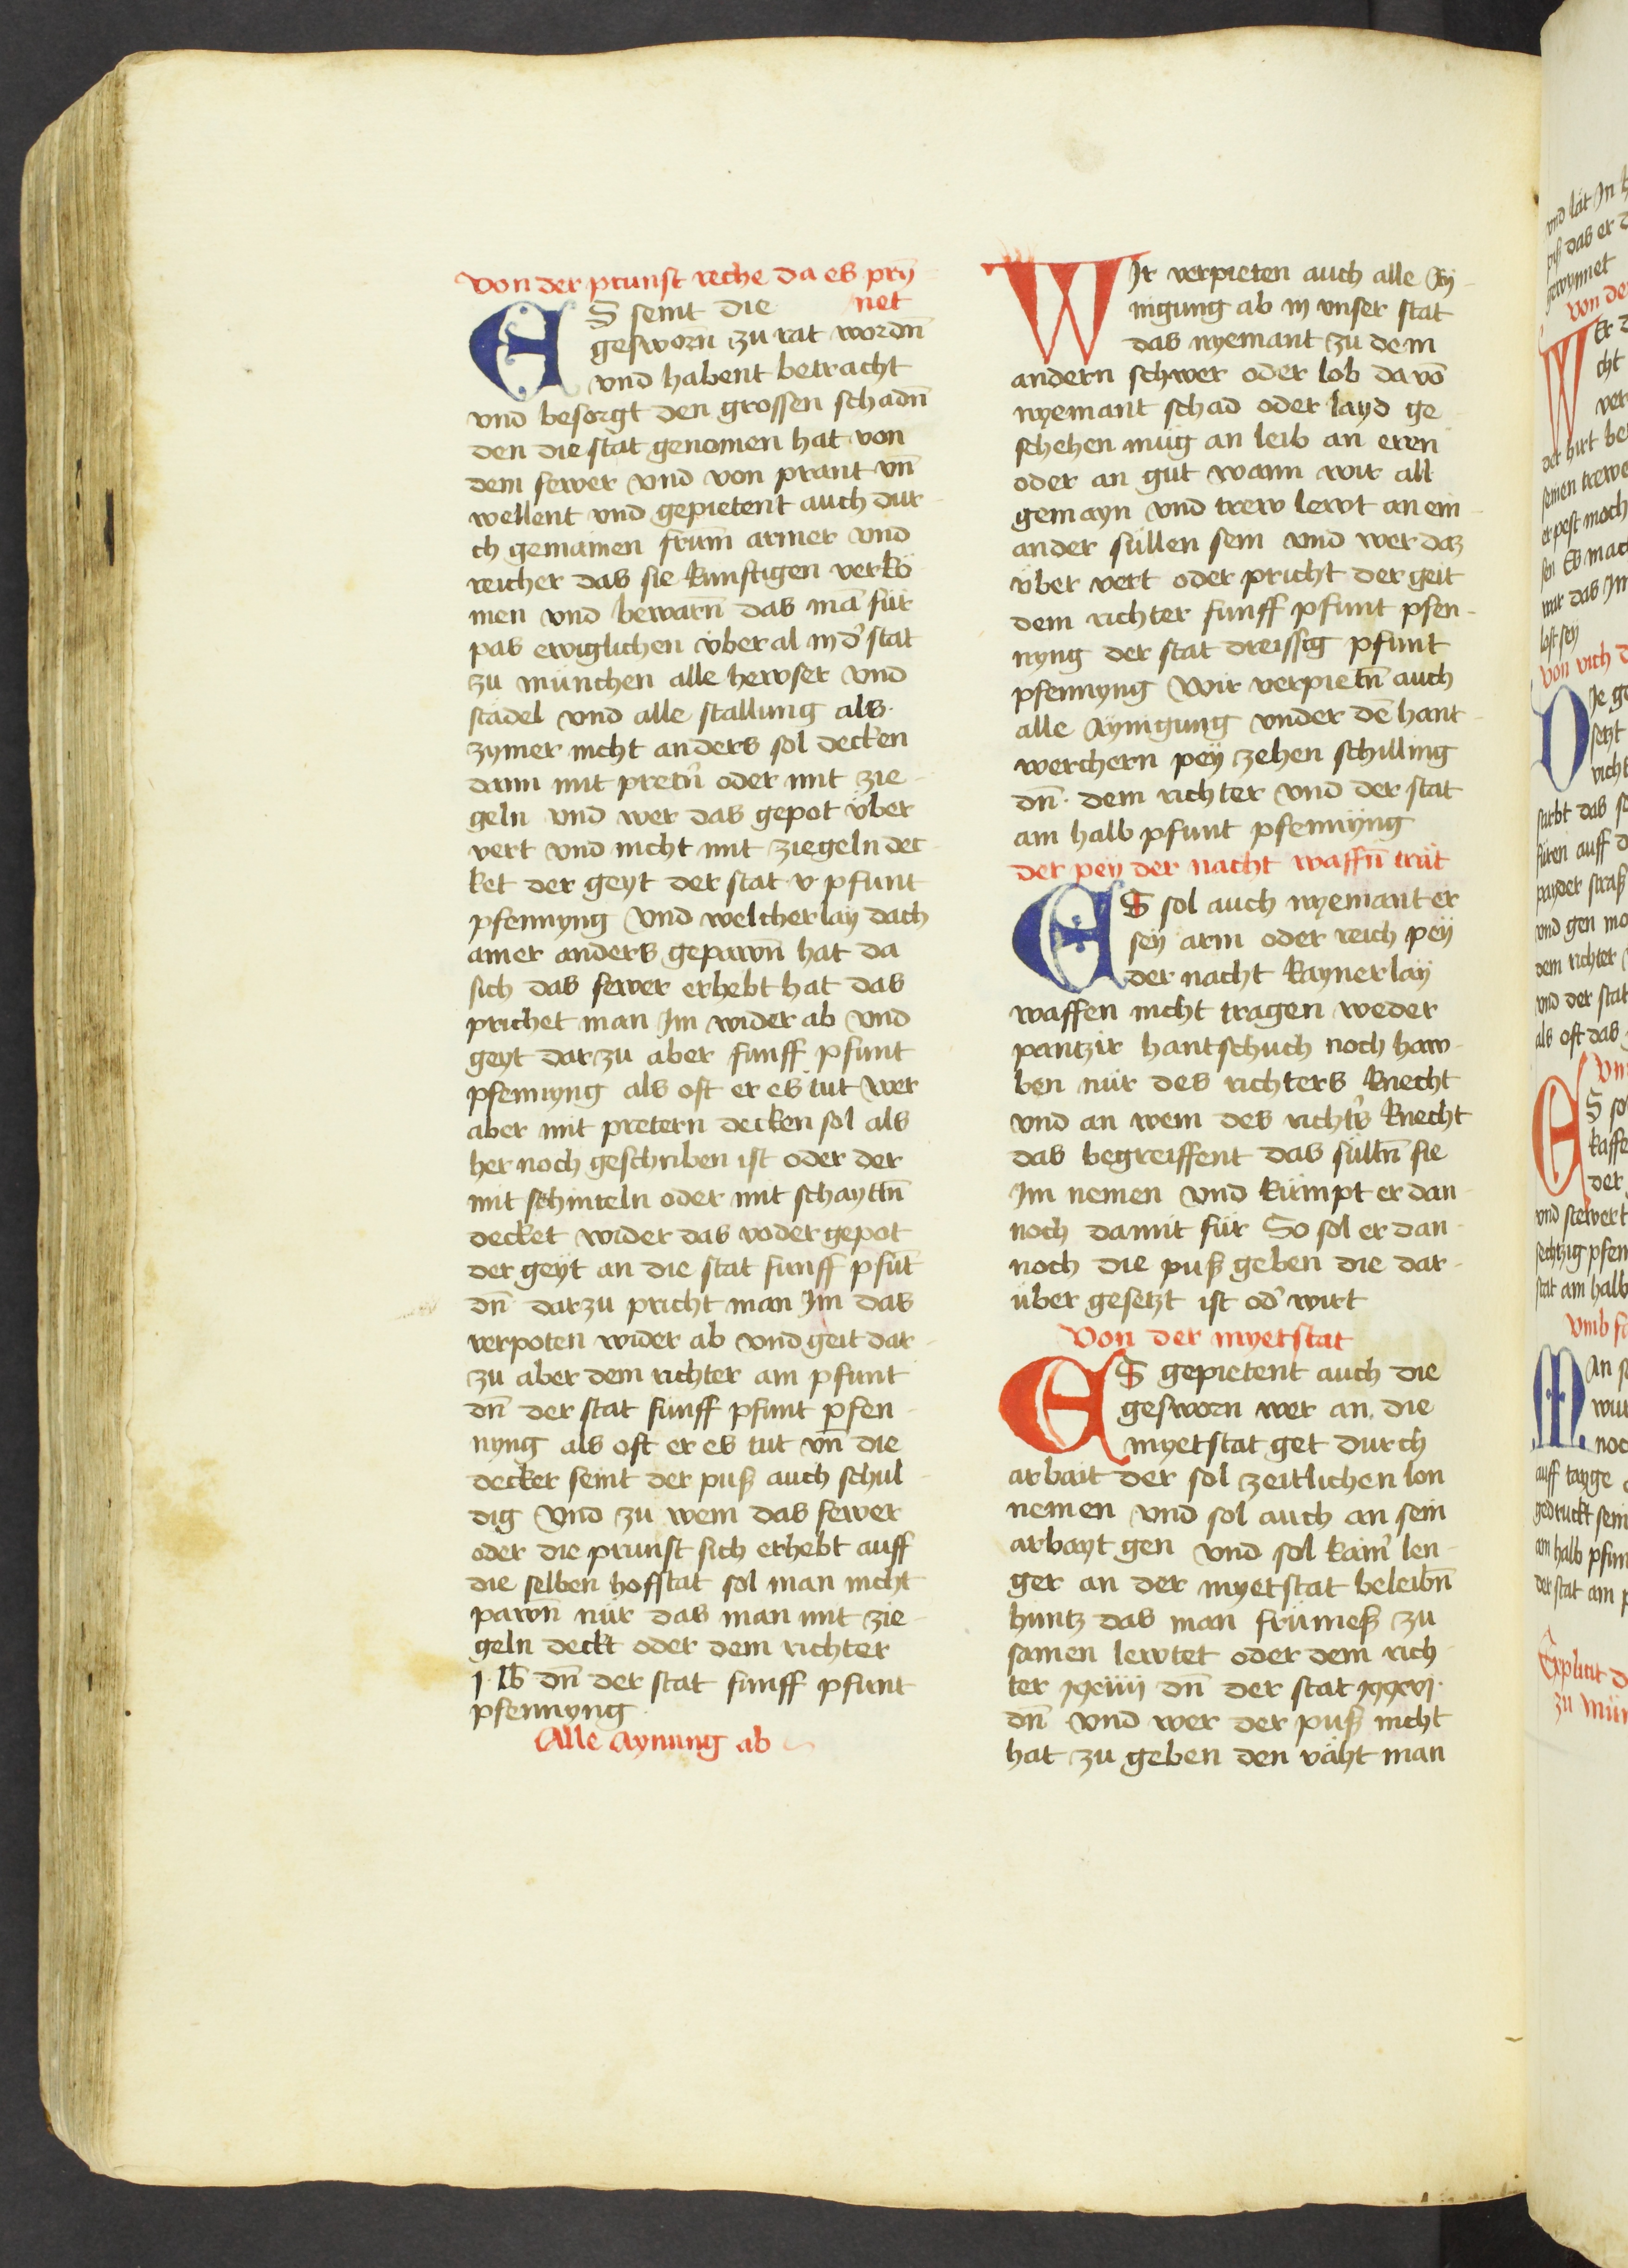 Von der prunst reche da es prÿn
net
ES seint die
gesworñ zu rat wordñ
vnd habent betracht
vnd besorgt den grossen schadñ
den die stat genomen hat von
dem fewer vnd von prant vñ
wellent vnd gepietent auch dur
ch gemainen frum̄ armer vnd
reicher das sie kunftigen verkö
men vnd bewarñ das mā für
pas ewiglichen vberal in d' stat
zu münchen alle hewser vnd
städel vnd alle stallung als
zymer nicht anders sol decken
dann mit pretñ oder mit zie
geln vnd wer das gepot über
vert vnd nicht mit ziegeln dec
ket der geyt der stat v pfunt
pfennyng Vnd welcherlay dach
ainer anders gepawñ hat da
sich das fewer erhebt hat das
prichet man Im wider ab vnd
geyt darzu aber funff pfunt
pfennyng als oft er es tut wer
aber mit pretern decken sol als
her noch geschriben ist oder der
mit schinteln oder mit schayttñ
decket wider das voder gepot
der geyt an die stat funff pfūt
dñ darzu pricht man Im das
verpoten wider ab vnd geit dar
zu aber dem richter ain pfunt
dñ der stat funff pfunt pfen
nyng als oft er es tut vñ die
decker seint der puß auch schul
dig Vnd zu wem das fewer
oder die prunst sich erhebt auff
die selben hofstat sol man nicht
pawñ nür das man mit zie
geln deckt oder dem richter
j lb dñ der stat funff pfunt
pfennyng
Alle Aynung ab
WIr verpieten auch alle Ay
nigung ab in vnser stat
das nyemant zu dem
andern schwer oder lob da võ
nyemant schad oder layd ge
schehen müg an leib an eren
oder an gut wann wir all
gemayn vnd trew lewt an ein
ander süllen sein vnd wer daz
über vert oder pricht der geit
dem richter funff pfunt pfen
nyng der stat dreissig pfunt
pfennyng Wir verpietñ auch
alle Aynigung vnder dē hant
werchern peÿ zehen schilling
dñ dem richter vnd der stat
ain halb pfunt pfennyng
der pey der nacht waffñ trüt
ES sol auch nyemant er
seÿ arm oder reich peÿ
der nacht kaynerlaÿ
waffen nicht tragen weder
pantzir hantschuch noch haw
ben nür des richters knecht
vnd an wem des richt's knecht
das begreiffent das sülltñ sie
Im nemen vnd kümpt er dan
noch damit für So sol er dan
noch die puß geben die dar
über gesetzt ist od' wirt
Von der myetstat
ES gepietent auch die
gesworn wer an die
myetstat get durch
arbait der sol zeitlichen lon
nemen vnd sol auch an sein
arbayt gen vnd sol kain' len
ger an der myetstat beleibñ
huntz das man frümeß zu
samen lewtet oder dem rich
ter xxiiii dñ der stat xxxvi
dñ vnd wer der puß nicht
hat zu geben den väht man